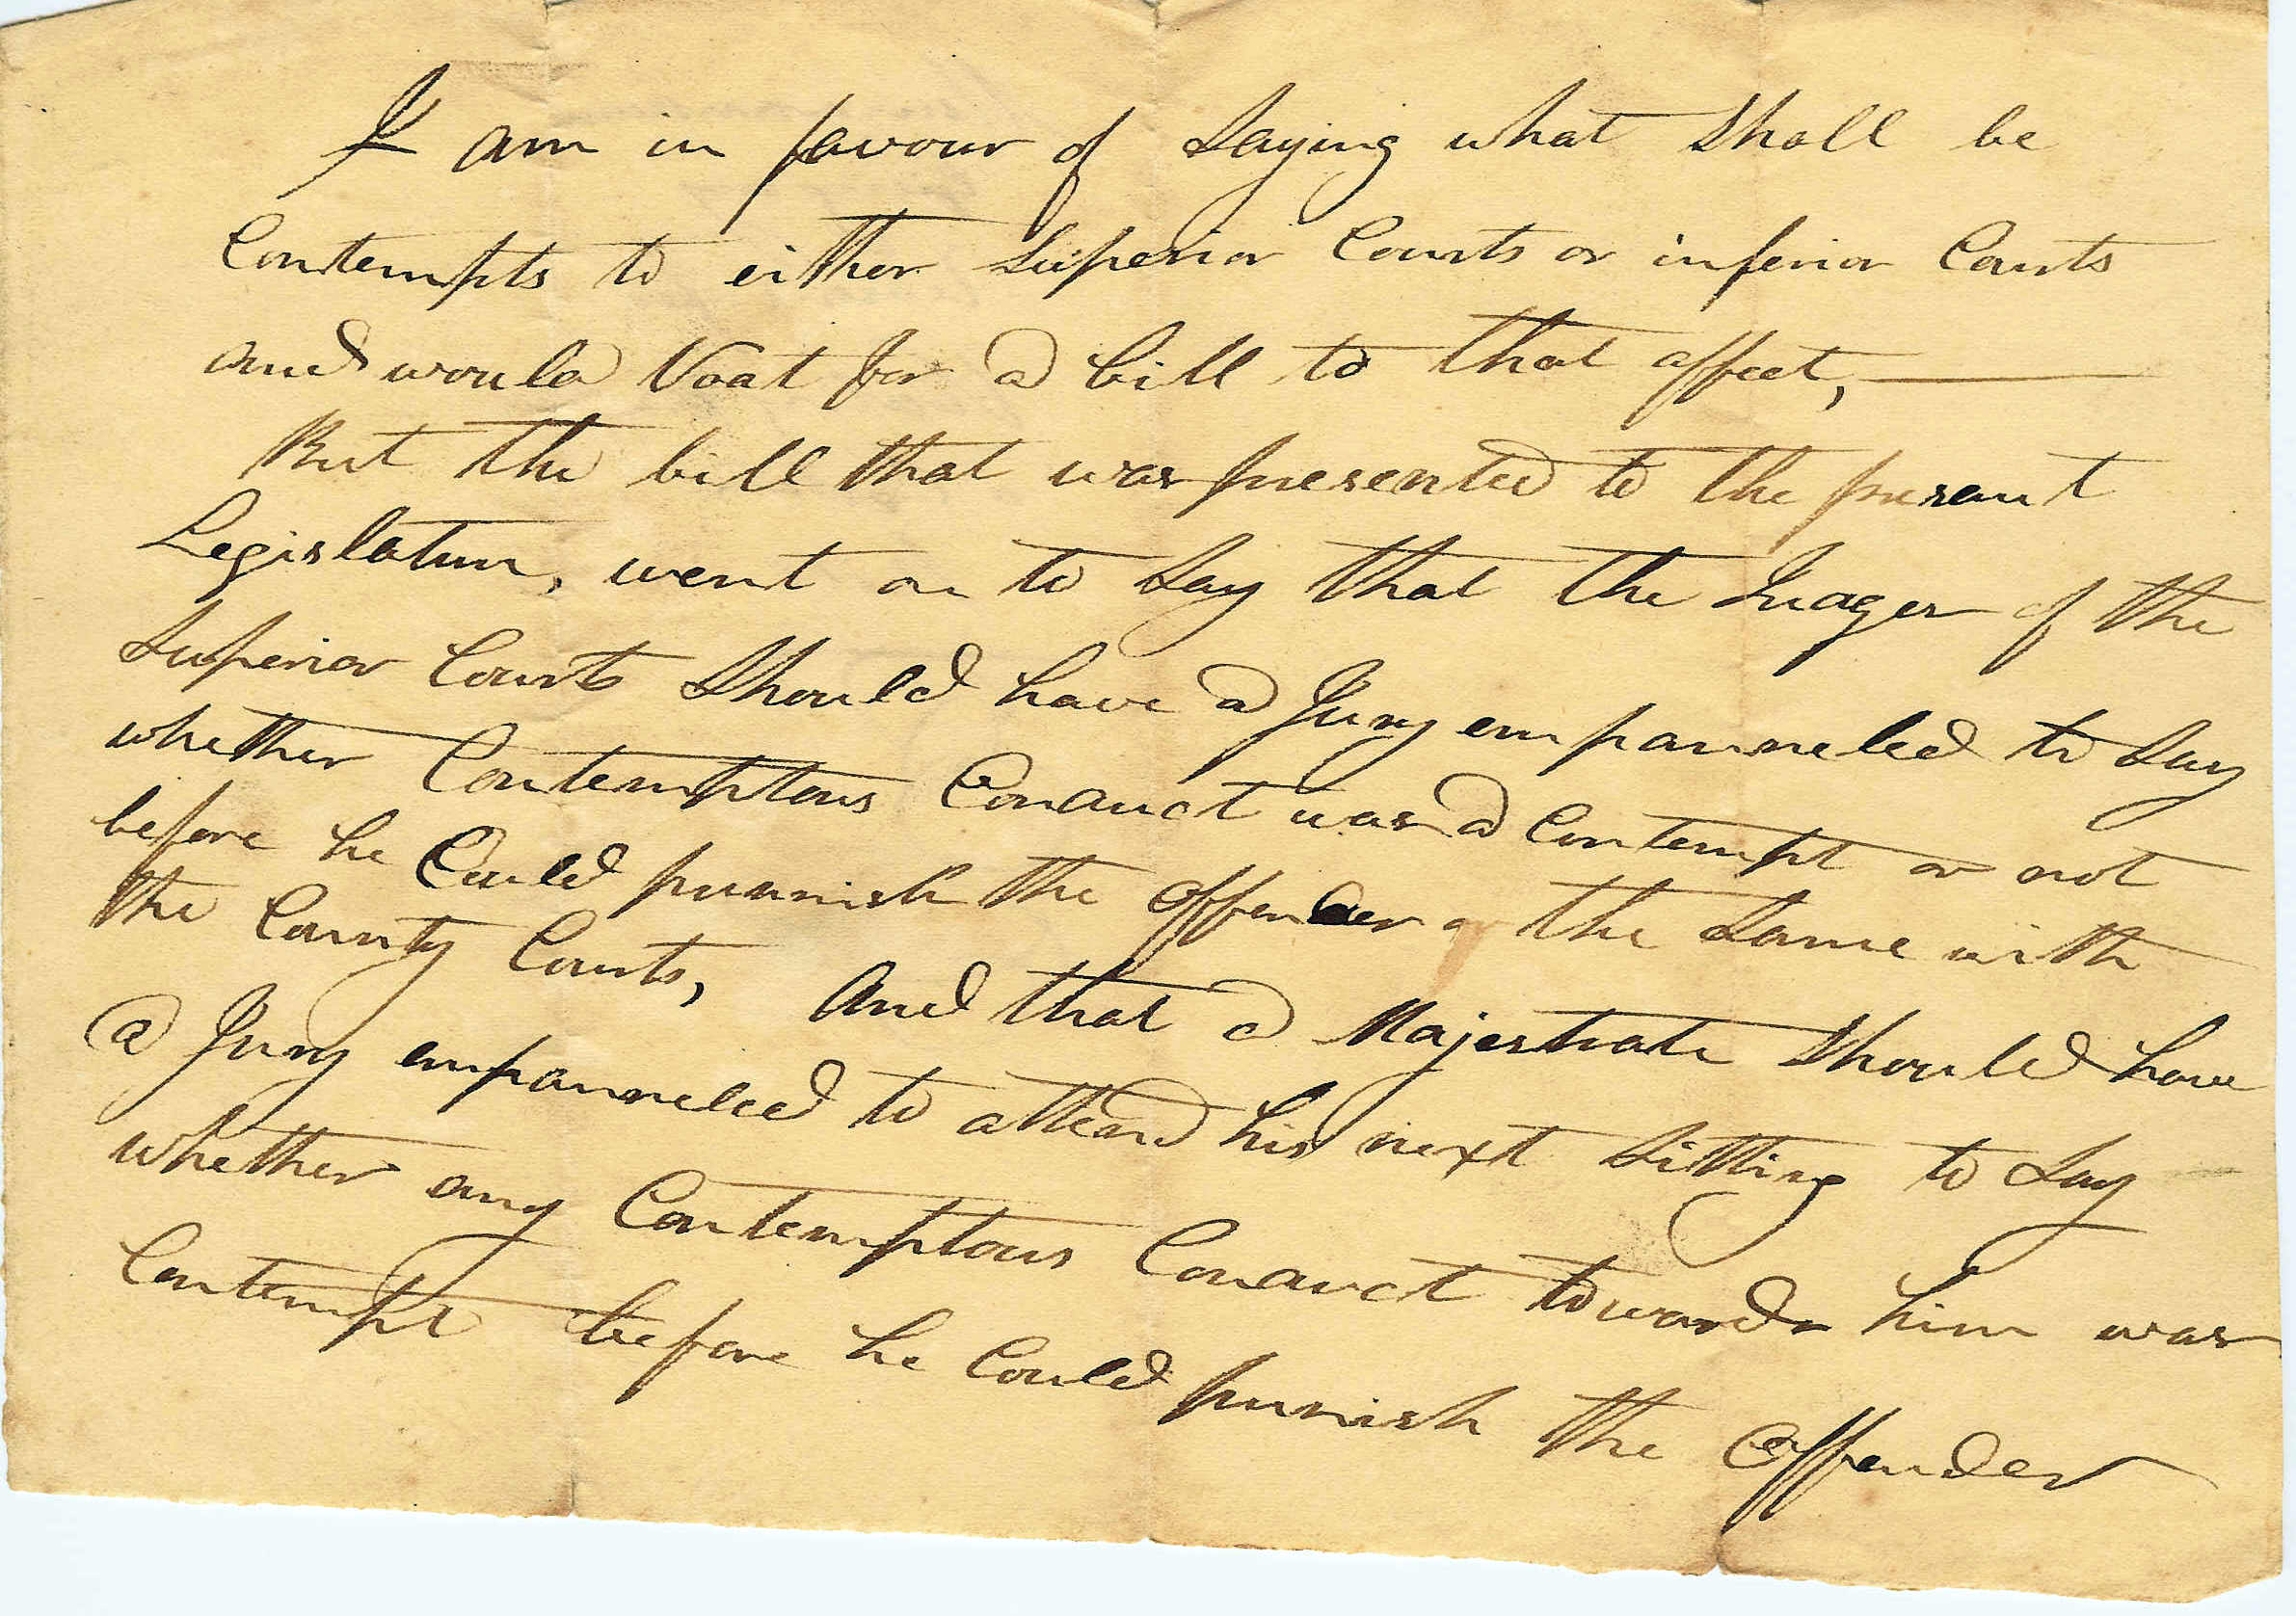 I am in favour of Saying what Shall be
Contempts to either Superior Courts or inferior Courts
and would Voat for a bill to that affect,
But the bill that was presented to the presant
Legislature, went on to Say that the Judges of the
Superior Courts Should have a Jury empanneled to Say
whether Contemptous Conduct was a Contempt or not
before he Could punnish the offender or the Same with
the County Courts, And that a Majestrate Should have
a Jury empanneled to attend his next Sitting to Say
whether any Contemptous Conduct towards him was
Contempt before he Could punish the Offender